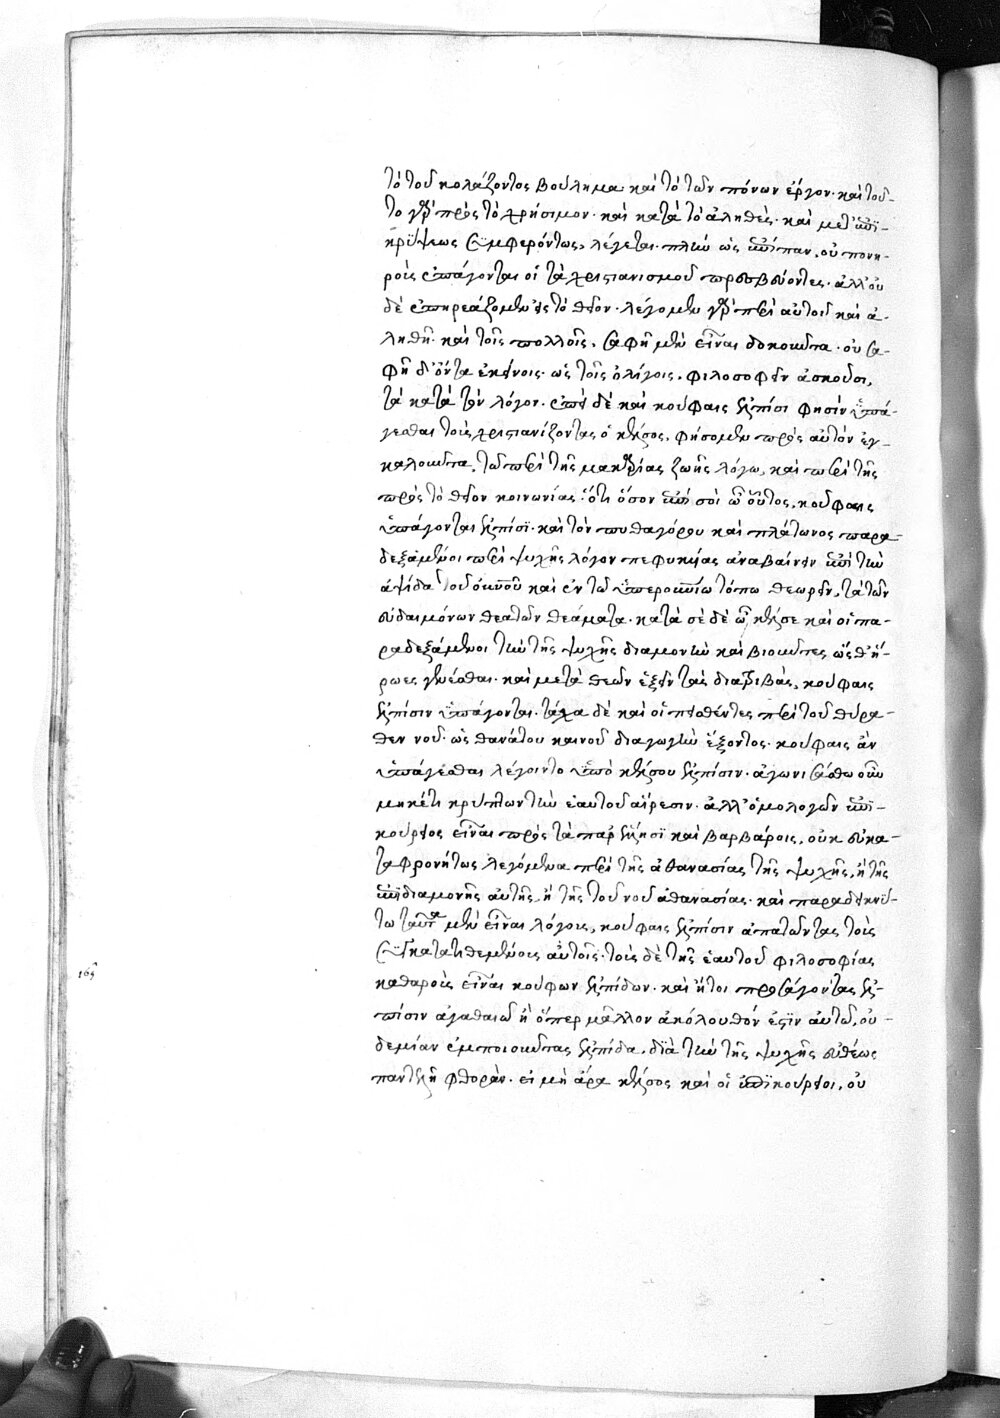 τὸ τοῦ κολάζοντος βούλημα καὶ τὸ τῶν πόνων ἔργον· καὶ τοῦ-
το γὰρ πρὸς τὸ χρήσιμον· καὶ κατὰ τὸ ἀληθὲς· καὶ μετ' ἐπι-
κρύψεως συμφερόντως, λέγεται· πλὴν ὡς ἐπίπαν, οὐ πονη-
ροὺς ἐπάγονται οἱ τὰ χριστιανισμοῦ πρεσβεύοντες· ἀλλ' οὐ
δὲ ἐπηρεάζομεν εἰς τὸ θεῖον· λέγομεν γὰρ περὶ αὐτοῦ καὶ ἀ-
ληθῆ· καὶ τοῖς πολλοῖς, σαφῆ μὲν εἶναι δοκοῦντα· οὐ σα-
φῆ δ' ὄντα ἐκείνοις· ὡς τοῖς ὀλίγοις, φιλοσοφεῖν ἀσκοῦσι,
τὰ κατὰ τὸν λόγον· ἐπεὶ δὲ καὶ κούφαις ἐλπίσι φησὶν ὑπά-
γεσθαι τοὺς χριστιανίζοντας ὁ κέλσος, φήσομεν πρὸς αὐτὸν ἐγ-
καλοῦντα, τῷ περὶ τῆς μακαρίας ζωῆς λόγω, καὶ περὶ τῆς
πρὸς τὸ θεῖον κοινωνίας· ὅτι ὅσον ἐπί σοὶ ὦ οὗτος, κούφαις
ὑπάγονται ἐλπίσι· καὶ τὸν πυθαγόρου καὶ πλάτωνος παρα-
δεξάμενοι περὶ ψυχῆς λόγον πεφυκυίας ἀναβαίνειν ἐπὶ τὴν
ἁψῖδα τοῦ οὐνοῦ καὶ ἐν τῶ ὑπερουνίω τόπω θεωρεῖν, τὰ τῶν
εὐδαιμόνων θεατῶν θεάματα· κατὰ σὲ δὲ ὦ κέλσε καὶ οἱ πα-
ραδεξάμενοι τὴν τῆς ψυχῆς διαμονὴν καὶ βιοῦντες ὥσθ' ἥ-
ρωες γενέσθαι· καὶ μετὰ θεῶν ἕξειν τὰς διατριβὰς, κούφαις
ἐλπίσιν ὑπάγονται· τάχα δὲ καὶ οἱ πεισθέντες περὶ τοῦ θύρα-
θεν νοῦ· ὡς θανάτου καινοῦ διαγωγὴν ἕξοντος· κούφαις ἂν
ὑπάγεσθαι λέγοιντο ὑπὸ κέλσου ἐλπίσιν· ἀγωνισάσθω οὖν
μηκέτι κρύπτων τὴν ἑαυτοῦ αἵρεσιν· ἀλλ' ὁμολογῶν ἐπι-
κούρειος εἶναι πρὸς τὰ παρ' ἕλλησι καὶ βαρβάροις, οὐκ εὐκα-
ταφρονήτως λεγόμενα περὶ τῆς ἀθανασίας τῆς ψυχῆς, ἢ τῆς
ἐπιδιαμονῆς αὐτῆς, ἢ τῆς τοῦ νοῦ ἀθανασίας· καὶ παραδεικνύ-
τω ταῦτα μὲν εἶναι λόγοις, κούφαις ἐλπίσιν ἀπατῶντας τοὺς
συγκατατιθεμένους αὐτοῖς· τοὺς δὲ τῆς ἑαυτοῦ φιλοσοφίας
καθαροὺς εἶναι κούφων ἐλπίδων· καὶ ἤτοι προσάγοντας ἐλ-
πίσιν ἀγαθαῖς ἢ ὅπερ μᾶλλον ἀκόλουθόν ἐστιν αὐτῶ, οὐ-
δεμίαν ἐμποιοῦντας ἐλπίδα, διὰ τὴν τῆς ψυχῆς εὐθέως
παντελῆ φθοράν· εἰ μὴ ἄρα κέλσος καὶ οἱ ἐπικούρειοι, οὐ